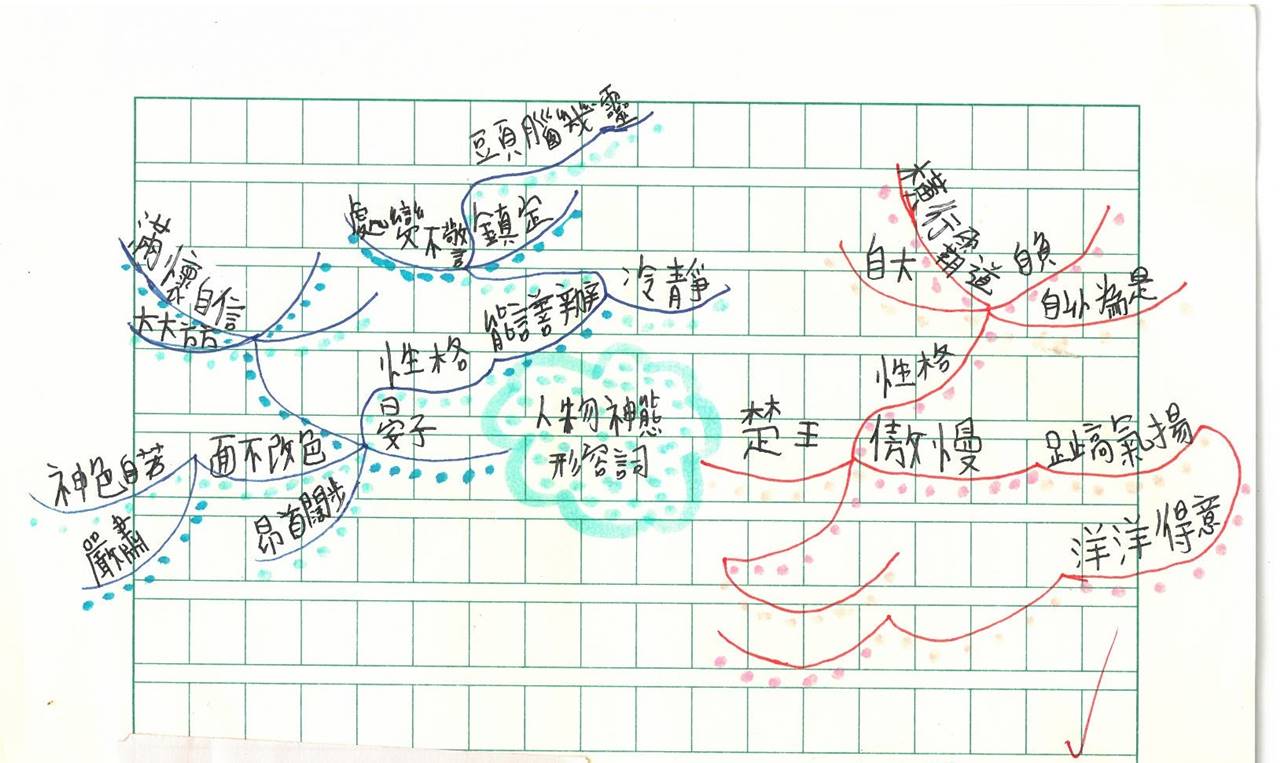 人物神態
形容詞
晏子
性格
能言善辯
冷靜
鎮定
處變不驚
頭腦幾靈
滿懷自信
大大方方
面不改色
神色自若
嚴肅
昂首闊步
楚王
性格
自大
橫行霸道
自負
自以為是
傲慢
趾高氣揚
洋洋得意